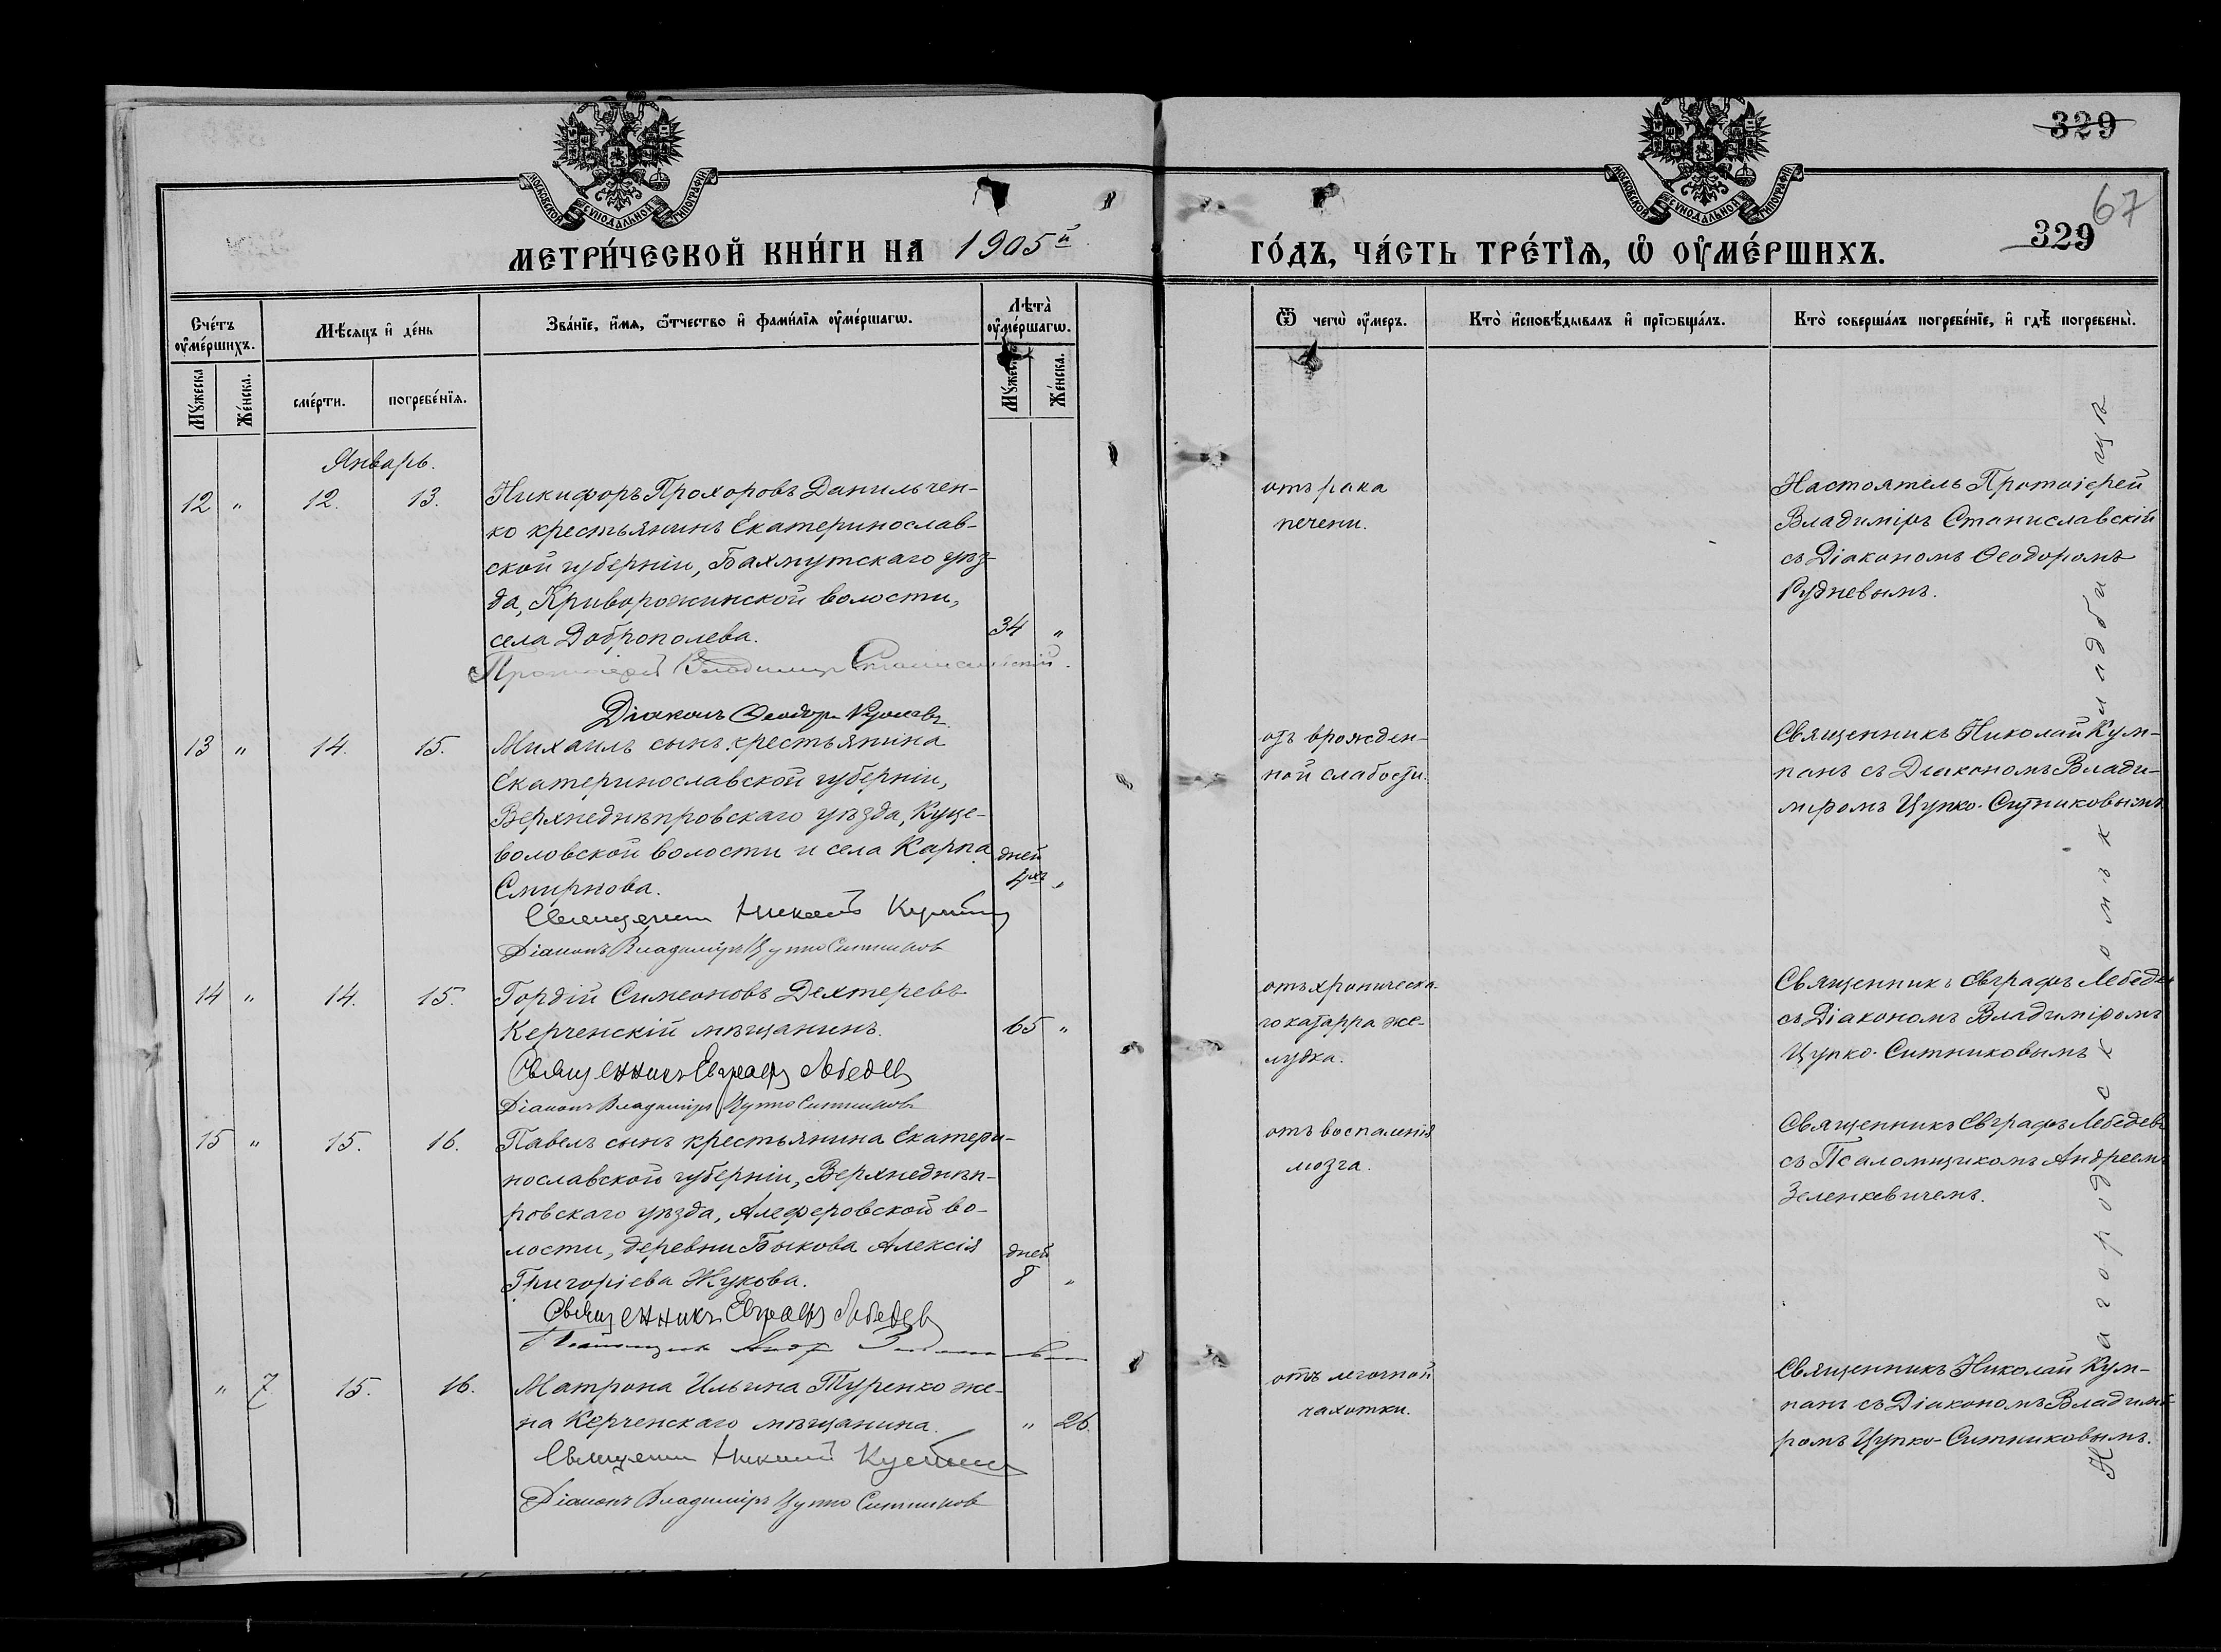 329
67
329
МОСКОВСКОЙ СѴНОДАЛЬНОЙ ТИПОГРАФІИ
МОСКОВСКОЙ СѴНОДАЛЬНОЙ ТИПОГРАФІИ
МЕТРИ́ЧЕСКОЙ КНИ́ГИ НА 1905й
ГО́ДЪ, ЧА́СТЬ ТРЕ́ТЇѦ, Ѡ҆ ОУ҆МЕ́РШИХЪ.
Сче́тъ оу҆ме́ршихъ.
Мѣ́сяцъ и҆ де́нь
Зва́нїе, и҆́мѧ, ѻ҆́тчество и҆ фами́лїѧ оу҆ме́ршагѡ.
Лѣта̀ оу҆ме́ршагѡ.
Ѿ чегѡ̀ оу҆́меръ.
Кто̀ и҆сповѣ́дывалъ и҆ прїѡбща́лъ.
Кто̀ соверша́лъ погребе́нїе, и҆ гдѣ̀ погребены̀.
Мꙋ́жеска
Же́нска.
сме́рти.
погребе́нїѧ.
Мꙋ́жеска
Же́нска.
Январь.
12 " 12. 13. Никифоръ Прохоровъ Данильчен-
ко крестьянинъ Екатеринослав-
ской губерніи, Бахмутскаго уѣз-
да, Криворожинской волости,
села Доброполева. 34 "
Протоіерей Владиміръ Станиславскій.
Діаконъ Ѳеодоръ Рудневъ.
отъ рака
печени.
Настоятель Протоіерей
Владиміръ Станиславскій
съ Діакономъ Ѳеодоромъ
Рудневымъ.
13 " 14. 15. Михаилъ сынъ крестьянина
Екатеринославской губерніи,
Верхнеднѣпровскаго уѣзда, Куце-
воловской волости и села Карпа дней
Смирнова. 4хъ "
Священникъ Николай Кумпанъ
Діаконъ Владиміръ Цупко Ситниковъ
отъ врожден-
ной слабости.
Священникъ Николай Кум-
панъ съ Діакономъ Влади-
міромъ Цупко-Ситниковымъ
14 " 14. 15. Гордій Симеоновъ Дехтеревъ
Керченскій мѣщанинъ. 65 "
Священникъ Евграфъ Лебедевъ
Діаконъ Владиміръ Цупко Ситниковъ
отъ хроническа-
го катарра же-
лудка.
Священникъ Евграфъ Лебедев
съ Діакономъ Владиміромъ
Цупко-Ситниковымъ
15 " 15. 16. Павелъ сынъ крестьянина Екатери-
нославской губерніи, Верхнеднѣп-
ровскаго уѣзда, Алеферовской во-
лости, деревни Быкова Алексія дней
Григоріева Жукова. 8 "
Священникъ Евграфъ Лебедевъ
отъ воспаленія
мозга.
Священникъ Евграфъ Лебедевъ
съ Псаломщикомъ Андреемъ
Зеленкевичемъ.
" 7 15. 16. Матрона Ильина Туренко же-
на Керченскаго мѣщанина. " 26.
Священникъ Николай Кумпанъ
Діаконъ Владиміръ Цупко Ситниковъ
отъ легочной
чахотки.
Священникъ Николай Кум-
панъ съ Діакономъ Владимі-
ромъ Цупко-Ситниковымъ.
На городскомъ кладбищѣ